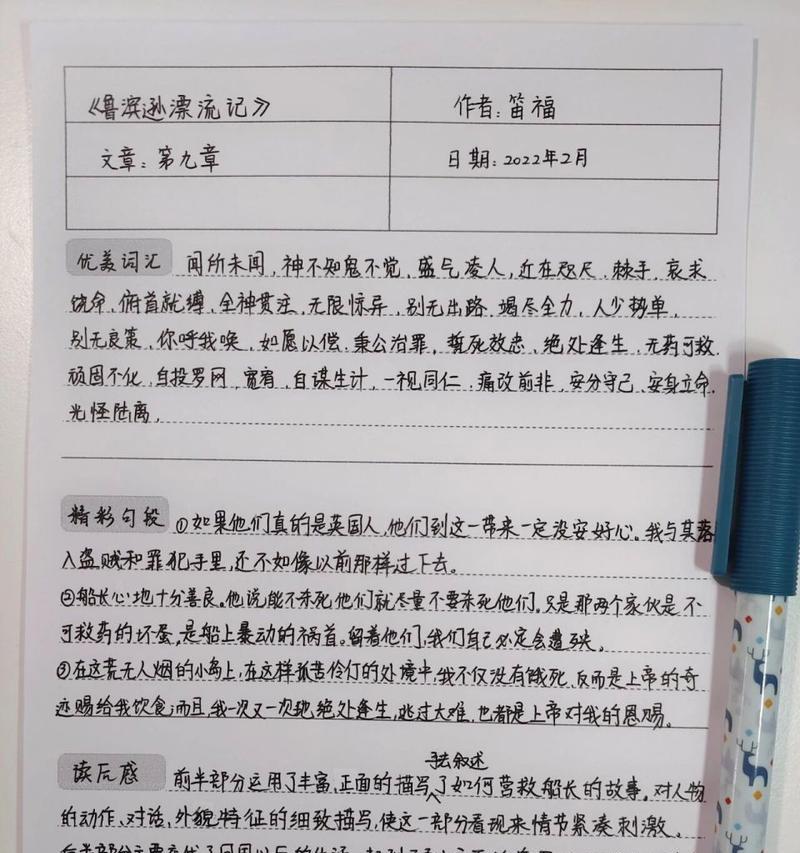 《鲁滨逊漂流记》 作者:笛福
文章:第九章 日期:2022年2月
优美词汇 闻所未闻,神不知鬼不觉,盛气凌人,近在咫尺,棘手,哀求
饶命,俯首就缚,全神贯注,无限惊异,别无出路,竭尽全力,人少势单,
别无良策,你呼我唤,如愿以偿,秉公治罪,誓死效忠,绝处逢生,无药可救,
顽固不化,自投罗网,宽宥,自谋生计,一视同仁,痛改前非,安分守己、安身立命,
光怪陆离,
精彩句段 ①如果他们真的是英国人,他们到这一带来一定没安好心。我与其落
入盗贼和罪犯手里,还不如像以前那样过下去。
②船长心地十分善良。他说能不杀死他们就尽量不要杀死他们。只是那两个家伙是不
可救药的坏蛋,是船上暴动的祸首。留着他们,我们自己必定会遭殃。
③在这荒无人烟的小岛上,在这样孤苦伶仃的处境中,我不仅没有饿死,反而是上帝的奇
迹赐给我饮食;而且,我一次又一次地绝处逢生,逃过大难,也都是上帝对我的恩赐。
读后感 前半部分运用了丰富、正面的描写叙述了如何营救船长的故事。对人物
的动作、对话,外貌特征的细致描写,使这一部分看现来情节紧凑刺激。